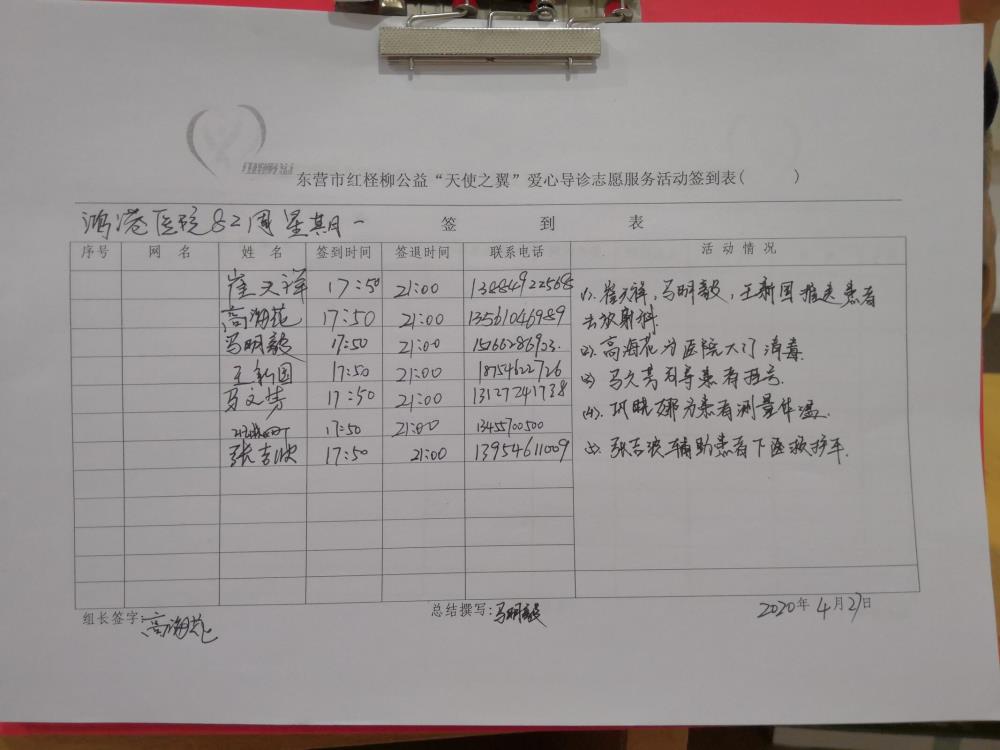 东营市红柽柳公益“天使之翼”爱心导诊志愿服务活动签到表(   )
鸿港医院82周星期一 签 到 表
序号 网 名 姓 名 签到时间 签退时间 联系电话 活动情况
崔文祥 17:50 21:00 13884922568
高海花 17:50 21:00 13561046989
马明毅 17:50 21:00 15266286923.
王新国 17:50 21:00 18754622726
马文芳 17:50 21:00 13127241738
17:50 21:00 13455700500
张吉波 17:50 21:00 13954611009
(1). 崔文祥,马明毅,王新国推送患者
去放射科.
(2). 高海花为医院大门消毒.
(3) 马文芳引导患者挂号.
(4). 巩晓娜为患者测量体温.
(5). 张吉波辅助患者下医救护车.
组长签字:高海花
总结撰写:马明毅
2020年4月27日